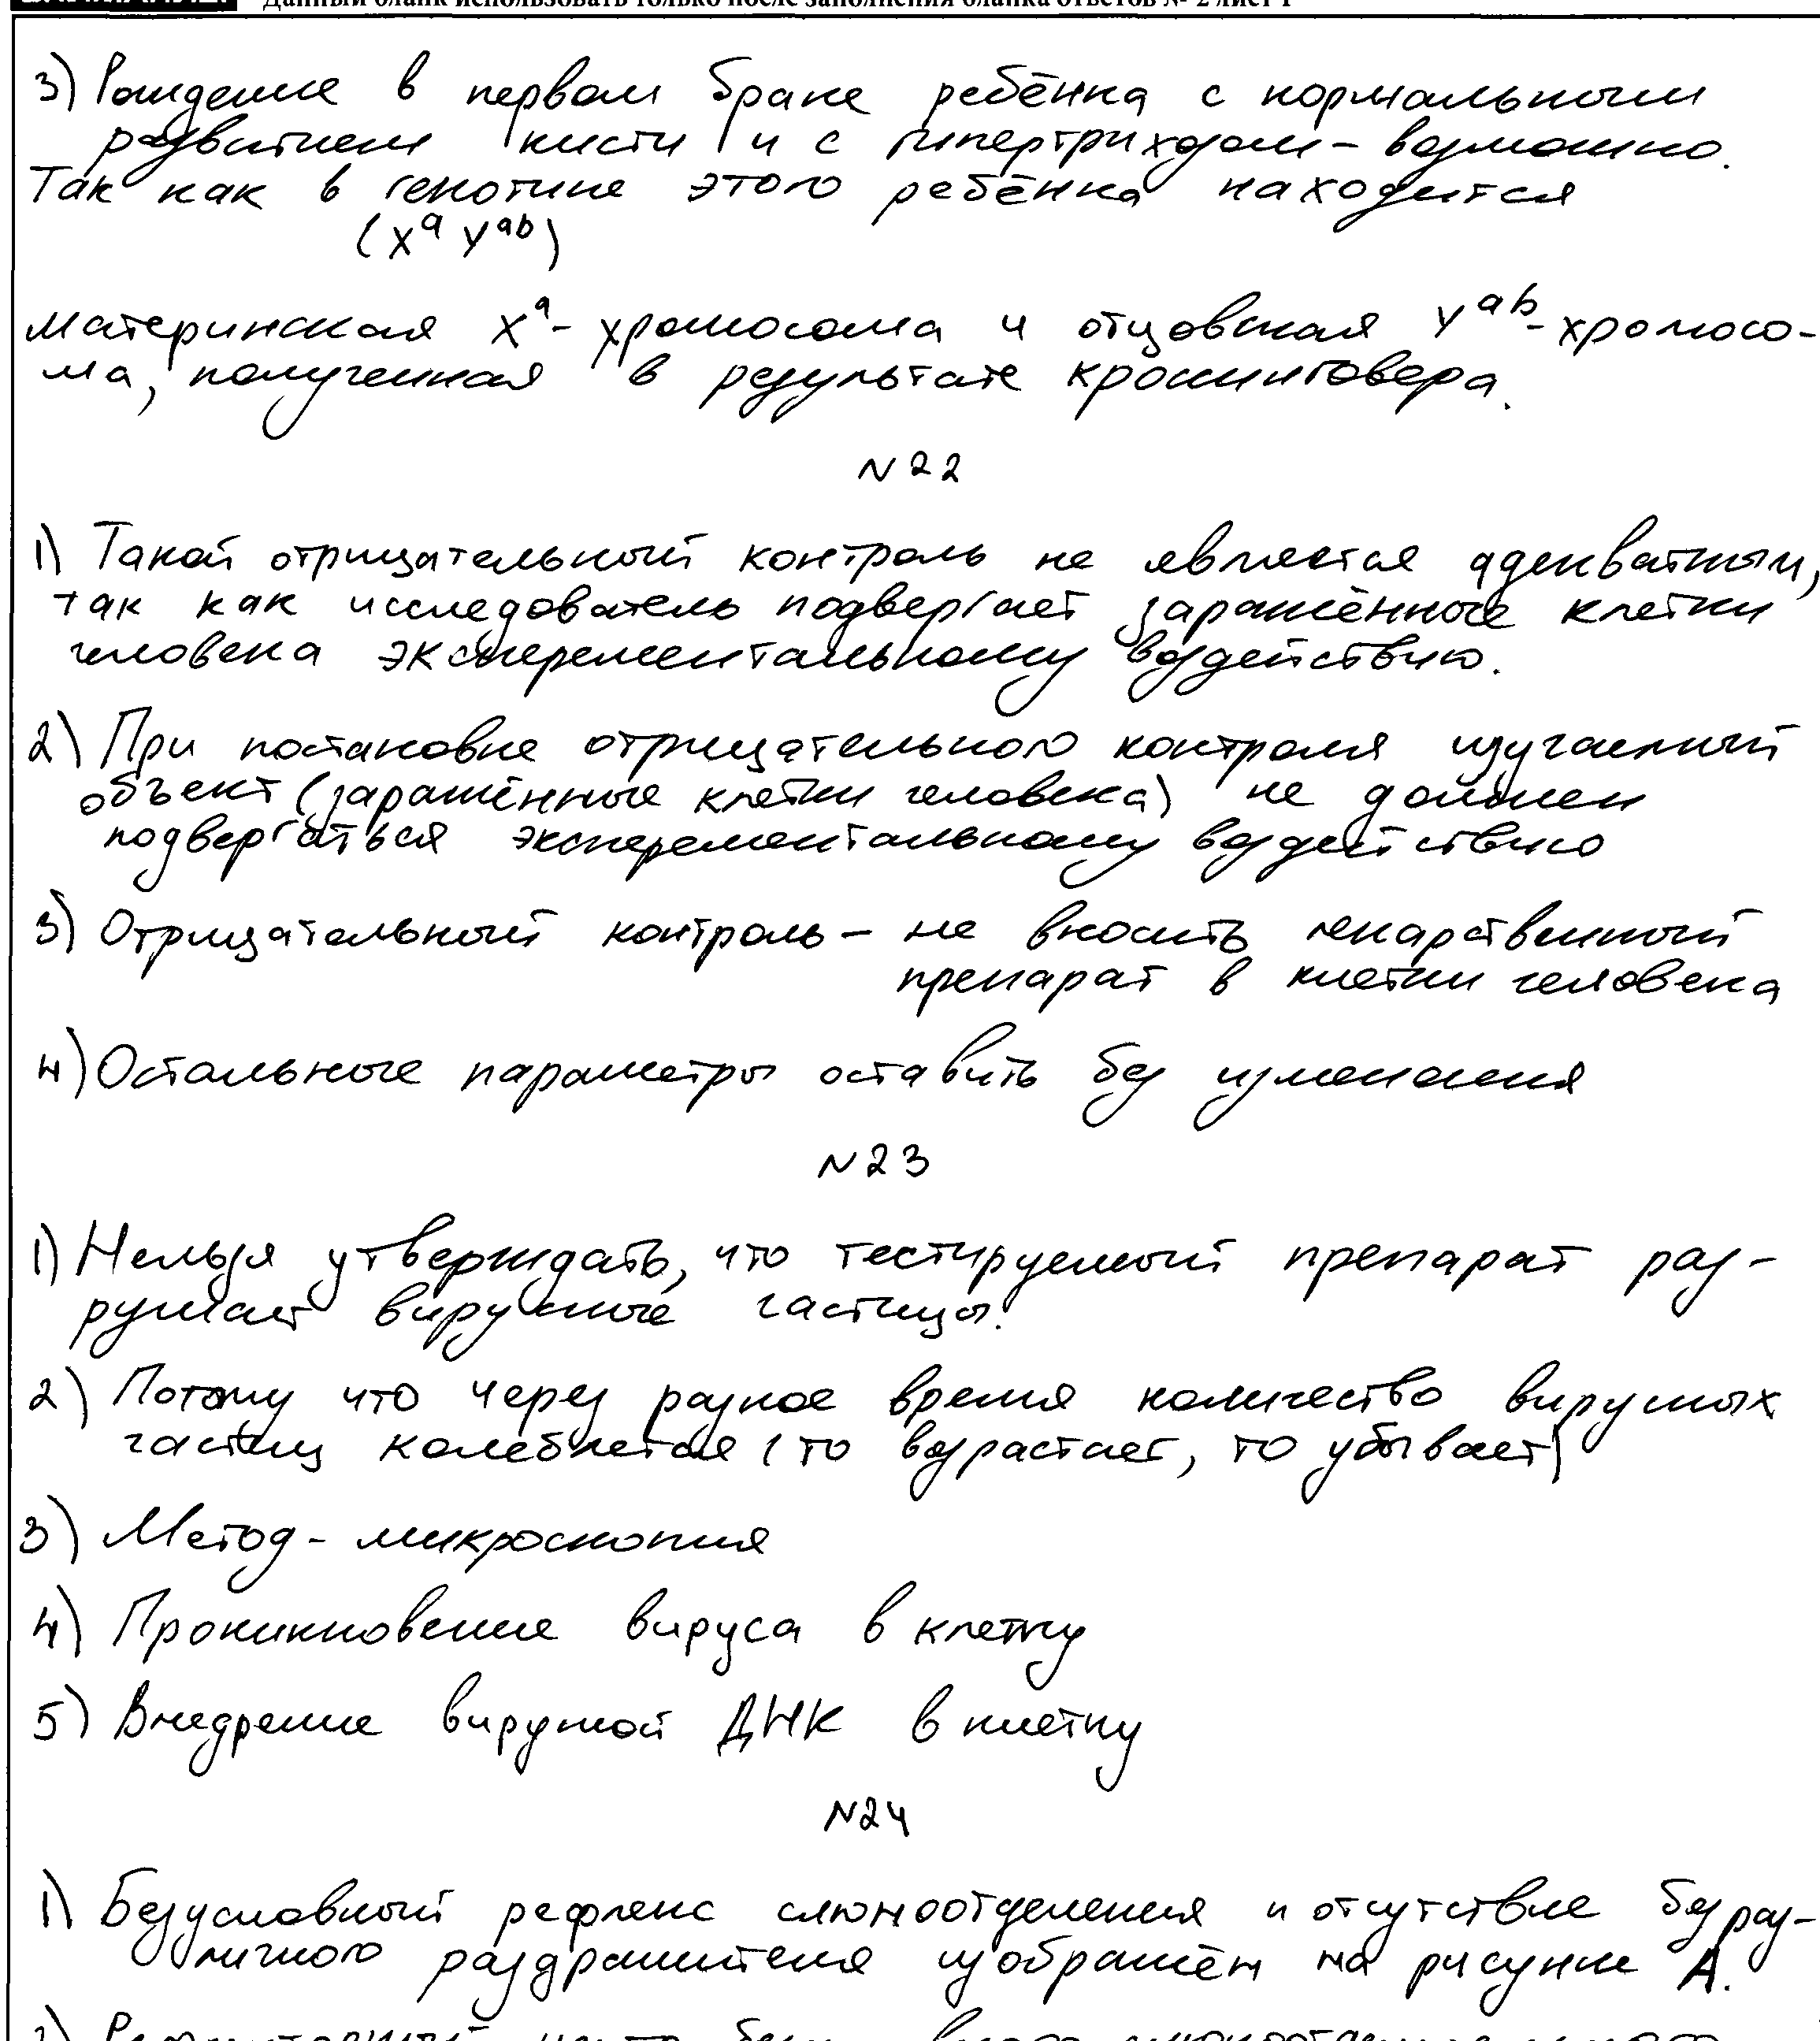 Данный бланк использовать только после заполнения бланка ответов № 2 лист 1
3) Рождение в первом браке ребёнка с нормальным
развитием кисти и с гипертрихозом – возможно.
Так как в генотипе этого ребёнка находится
(Xᵃ Yᵃᵇ)
материнская Xᵃ- хромосома и отцовская Yᵃᵇ-хромосо-
ма, полученная в результате кроссинговера.
N 22
1) Такой отрицательный контроль не является адекватным,
так как исследователь подвергает заражённые клетки
человека эксперементальному воздействию.
2) При постановке отрицательного контроля изучаемый
объект (заражённые клетки человека) не должен
подвергаться эксперементальному воздействию
3) Отрицательный контроль – не вносить лекарственный
препарат в клетки человека
4) Остальные параметры оставить без изменения
N 23
1) Нельзя утверждать, что тестируемый препарат раз-
рушает вирусные частицы.
2) Потому что через разное время количество вирусных
частиц колеблется (то возрастает, то убывает)
3) Метод - микроскопия
4) Проникновение вируса в клетку
5) Внедрение вирусной ДНК в клетку
N24
1) Безусловный рефлекс слюноотделения и отсутствие безраз-
личного раздражителя изображён на рисунке А.